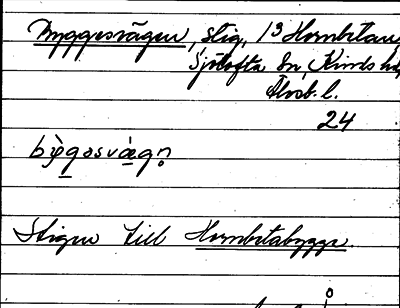 Byggesvägen, stig, 13 Hornbetan
Sjötofta sn, Kinds hd,
Älvsb. l.
24
bỳgɘsvägn̥
Stigen till Hornbetabygge.